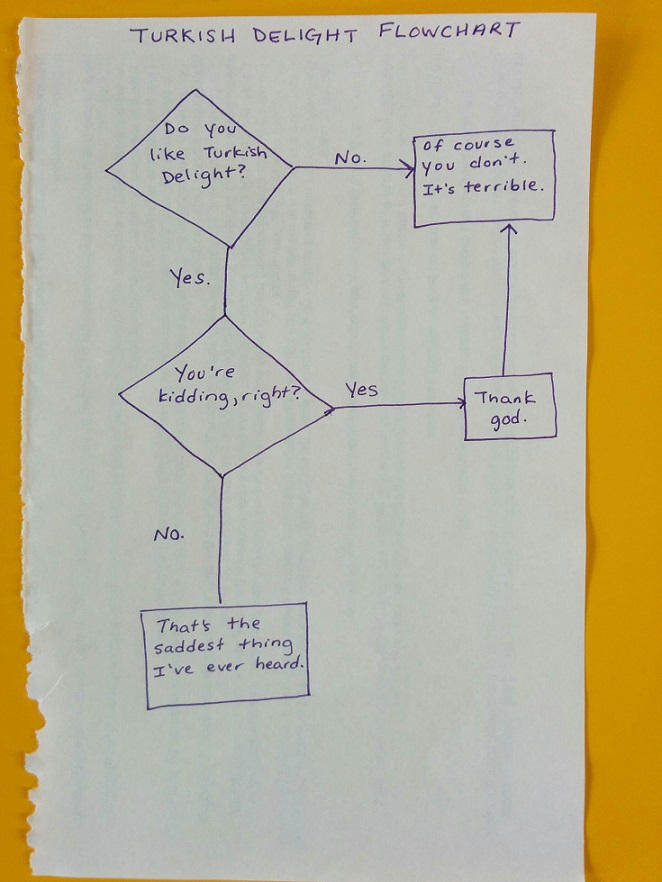 TURKISH DELIGHT FLOWCHART
Do you
like Turkish
Delight?
No.
of course
you don't.
It's terrible.
Yes.
You're
kidding, right?
Yes
Thank
god.
No.
That's the
saddest thing
I've ever heard.